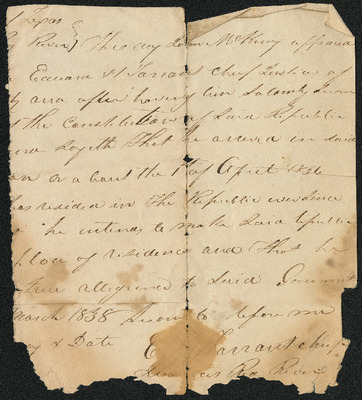 Texas
River} This day John McKinny appeared
Edward H Tarrant chief Justice of
and after having been Solomly Sworn
the Constitution of Said Republic
and Sayeth that he arived in said
on or about the 1st of April 1836
has resided in the Republic ever Since
he intends to make Said Republic
place of residence and that he
true allegiance to Said Government
March 1838 Sworn to before me
& Date E H Tarrant chief
Justice Red River